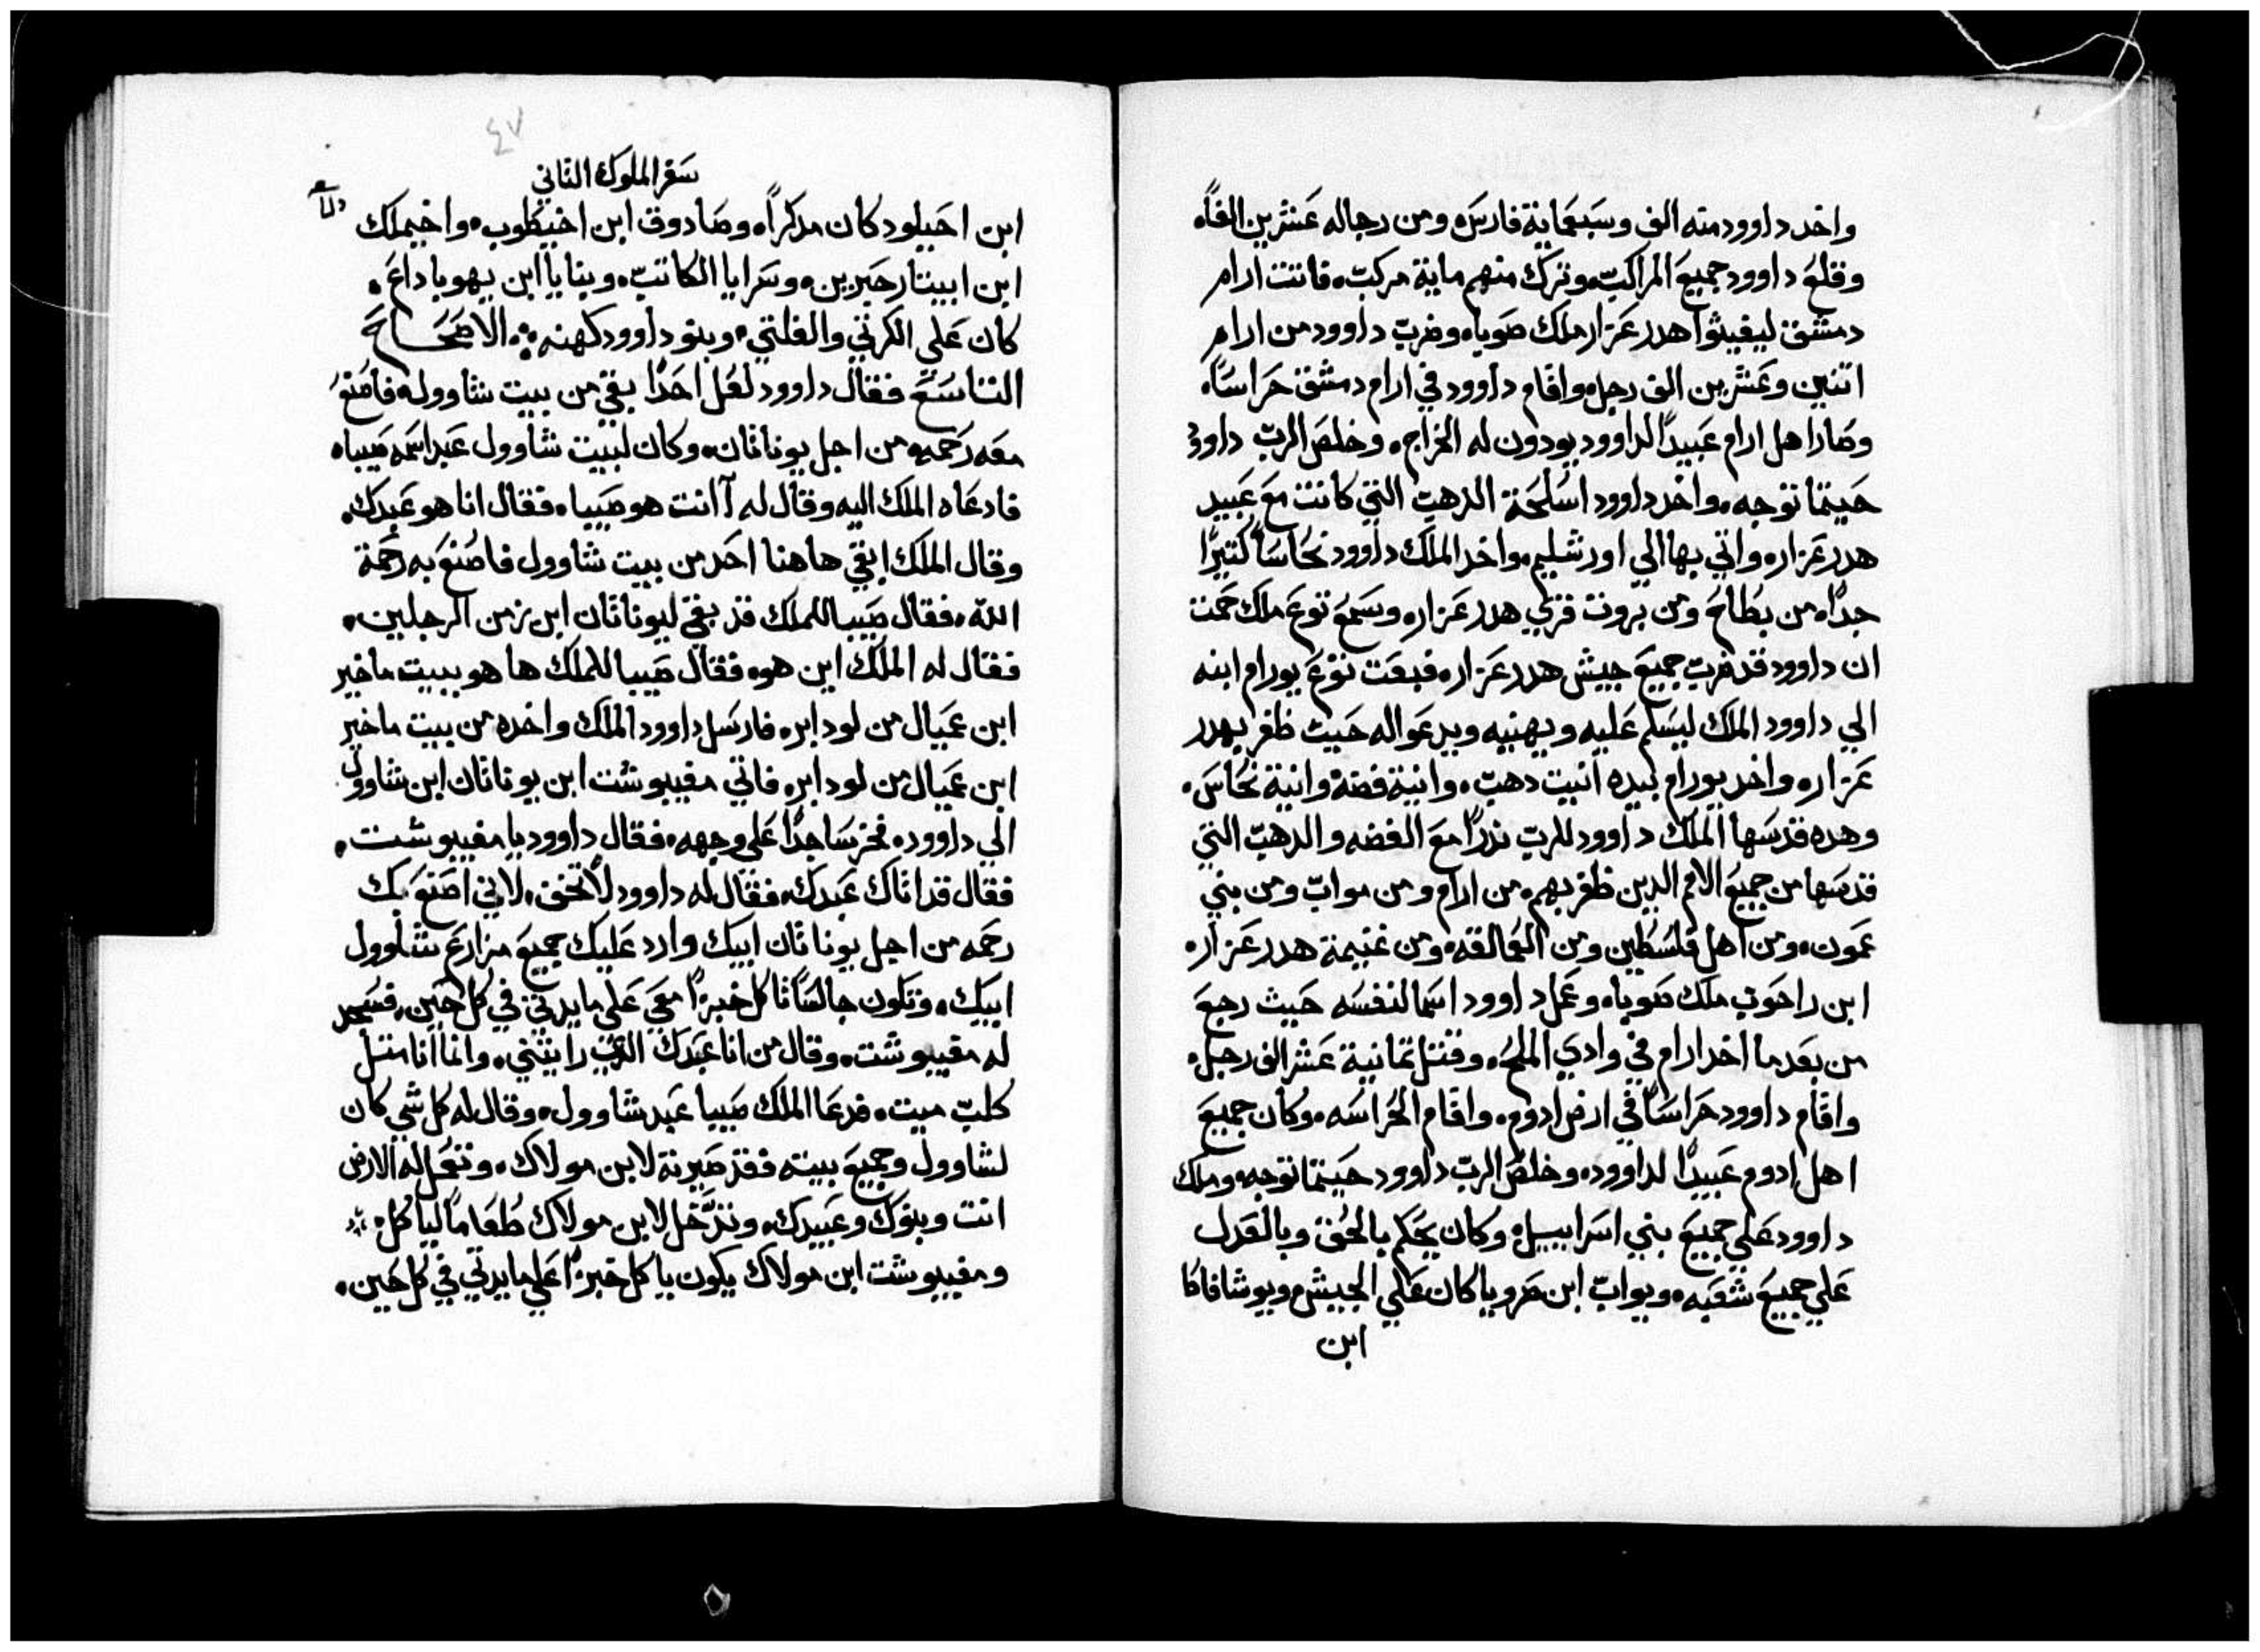 واخد داوود منه الف وسَبعَماية فارسَ ومن رجاله عَشرين الفاً
وقلعَ داوود جميعَ المراكبّ وترك منهم ماية مركبّ فانت ارام
دمشق ليغيثوا هدر عَزار ملك صَوبا وضربّ داوود من ارام
اتنين وعَشرين الف رجل واقام داوود في ارام دمشق حَراسَاً
وصَار اهل ارام عَبيداً لداوود يودون له الخراج وخلصَ الربّ داوود
حَيتما توجه واخد داوود اسُلحَة الدهبّ التي كانت معَ عَبيد
هدر عَزار واتي بها الي اورشليم واخد الملك داوود نحُاسَاً كتيرًا
جداً من بطاحَ ومن بروت قري هدر عَزار وسَمعَ توعَ ملك حَمت
ان داوود قد ضربّ جميعَ جيش هدر عَزار فبعَت توعَ يورام ابنه
الي داوود الملك ليسَلم عَليه ويهنيه ويدعَو اله حَيث ظفر بهدر
عَزار واخد يورام بيده انيت دهبّ وانية فضة وانية نحُاسَ
وهده قدسَها الملك داوود للربّ ندراً معَ الفضه والدهبّ التي
قدسَها من جميعَ الامم الدين ظفر بهم من ارام ومن موابّ ومن بني
عَمون ومن اهل فلسُطين ومن العَمالقه ومن غنيمة هدر عَزار
ابن راحَوبّ ملك صَوبا وعَمل داوود اسَما لنفسَه حَيث رجعَ
من بعَد ما اخد ارام في وادي الملحَ وقتل تمانية عَشر الف رجل
واقام داوود حَراسَاً في ارض ادوم واقام الحَراسَه وكان جميعَ
اهل ادوم عَبيداً لداوود وخلصَ الربّ داوود حَيتما توجه وملك
داوود عَلي جميعَ بني اسَراييل وكان يحَكم بالحَق وبالعَدل
عَلي جميعَ شعَبه ويوابّ ابن صَرويا كان عَلي الجيش ويوشافاكا
ابن
٤٧
سَفر الملوك التاني
ابن احَيلود كان مدكراً وصَادوق ابن اخيطوب واخيملك
ابن ابيتار حَبرين وسَرايا الكاتبّ وبنايا ابن يهوياداعَ
كان عَلي الكرتي والفلتي وبنو داوود كهنه الاصَحَاحَ
التاسَعَ فقال داوود لعَل احَدًا بقي من بيت شاوول فاصَنعَ
معَه رَحَمه من اجل يوناتان وكان لبيت شاوول عَبد اسَمه صَيبا
فادعَاه الملك اليه وقال له آانت هو صَيبا فقال انا هو عَبدك
وقال الملك ابقي هاهنا احَد من بيت شاوول فاصَنعَ به رحَمة
الله فقال صَيبا للملك قد بقي ليوناتان ابن زمن الرجلين
فقال له الملك اين هو فقال صَيبا للملك ها هو ببيت ماخير
ابن عَميال من لودابر فارسَل داوود الملك واخده من بيت ماخير
ابن عَميال من لودابر فاتي مفيبوشت ابن يوناتان ابن شاوول
الي داوود فخر سَاجدًا عَلي وجهه فقال داوود يا مفيبوشت
فقال قد اتاك عَبدك فقال له داوود لا تخف لاني اصَنعَ بك
رحَمه من اجل يوناتان ابيك وارد عَليك جميعَ مزارعَ شاوول
ابيك وتكون جالسَاً تاكل خبزاً معَي عَلي مايدتي في كل حَين فسَجد
له مفيبوشت وقال من انا عَبدك الدي رايتني وانما انا متل
كلبّ ميت فدعَا الملك صَيبا عَبد شاوول وقال له كل شي كان
لشاوول وجميعَ بيته فقد صَيرته لابن مولاك وتعَمل له الارض
انت وبنوك وعَبيدك وتدَّخل لابن مولاك طعَاماً لياكل
ومفيبوشت ابن مولاك يكون ياكل خبزاً عَلي مايدتي في كل حَين